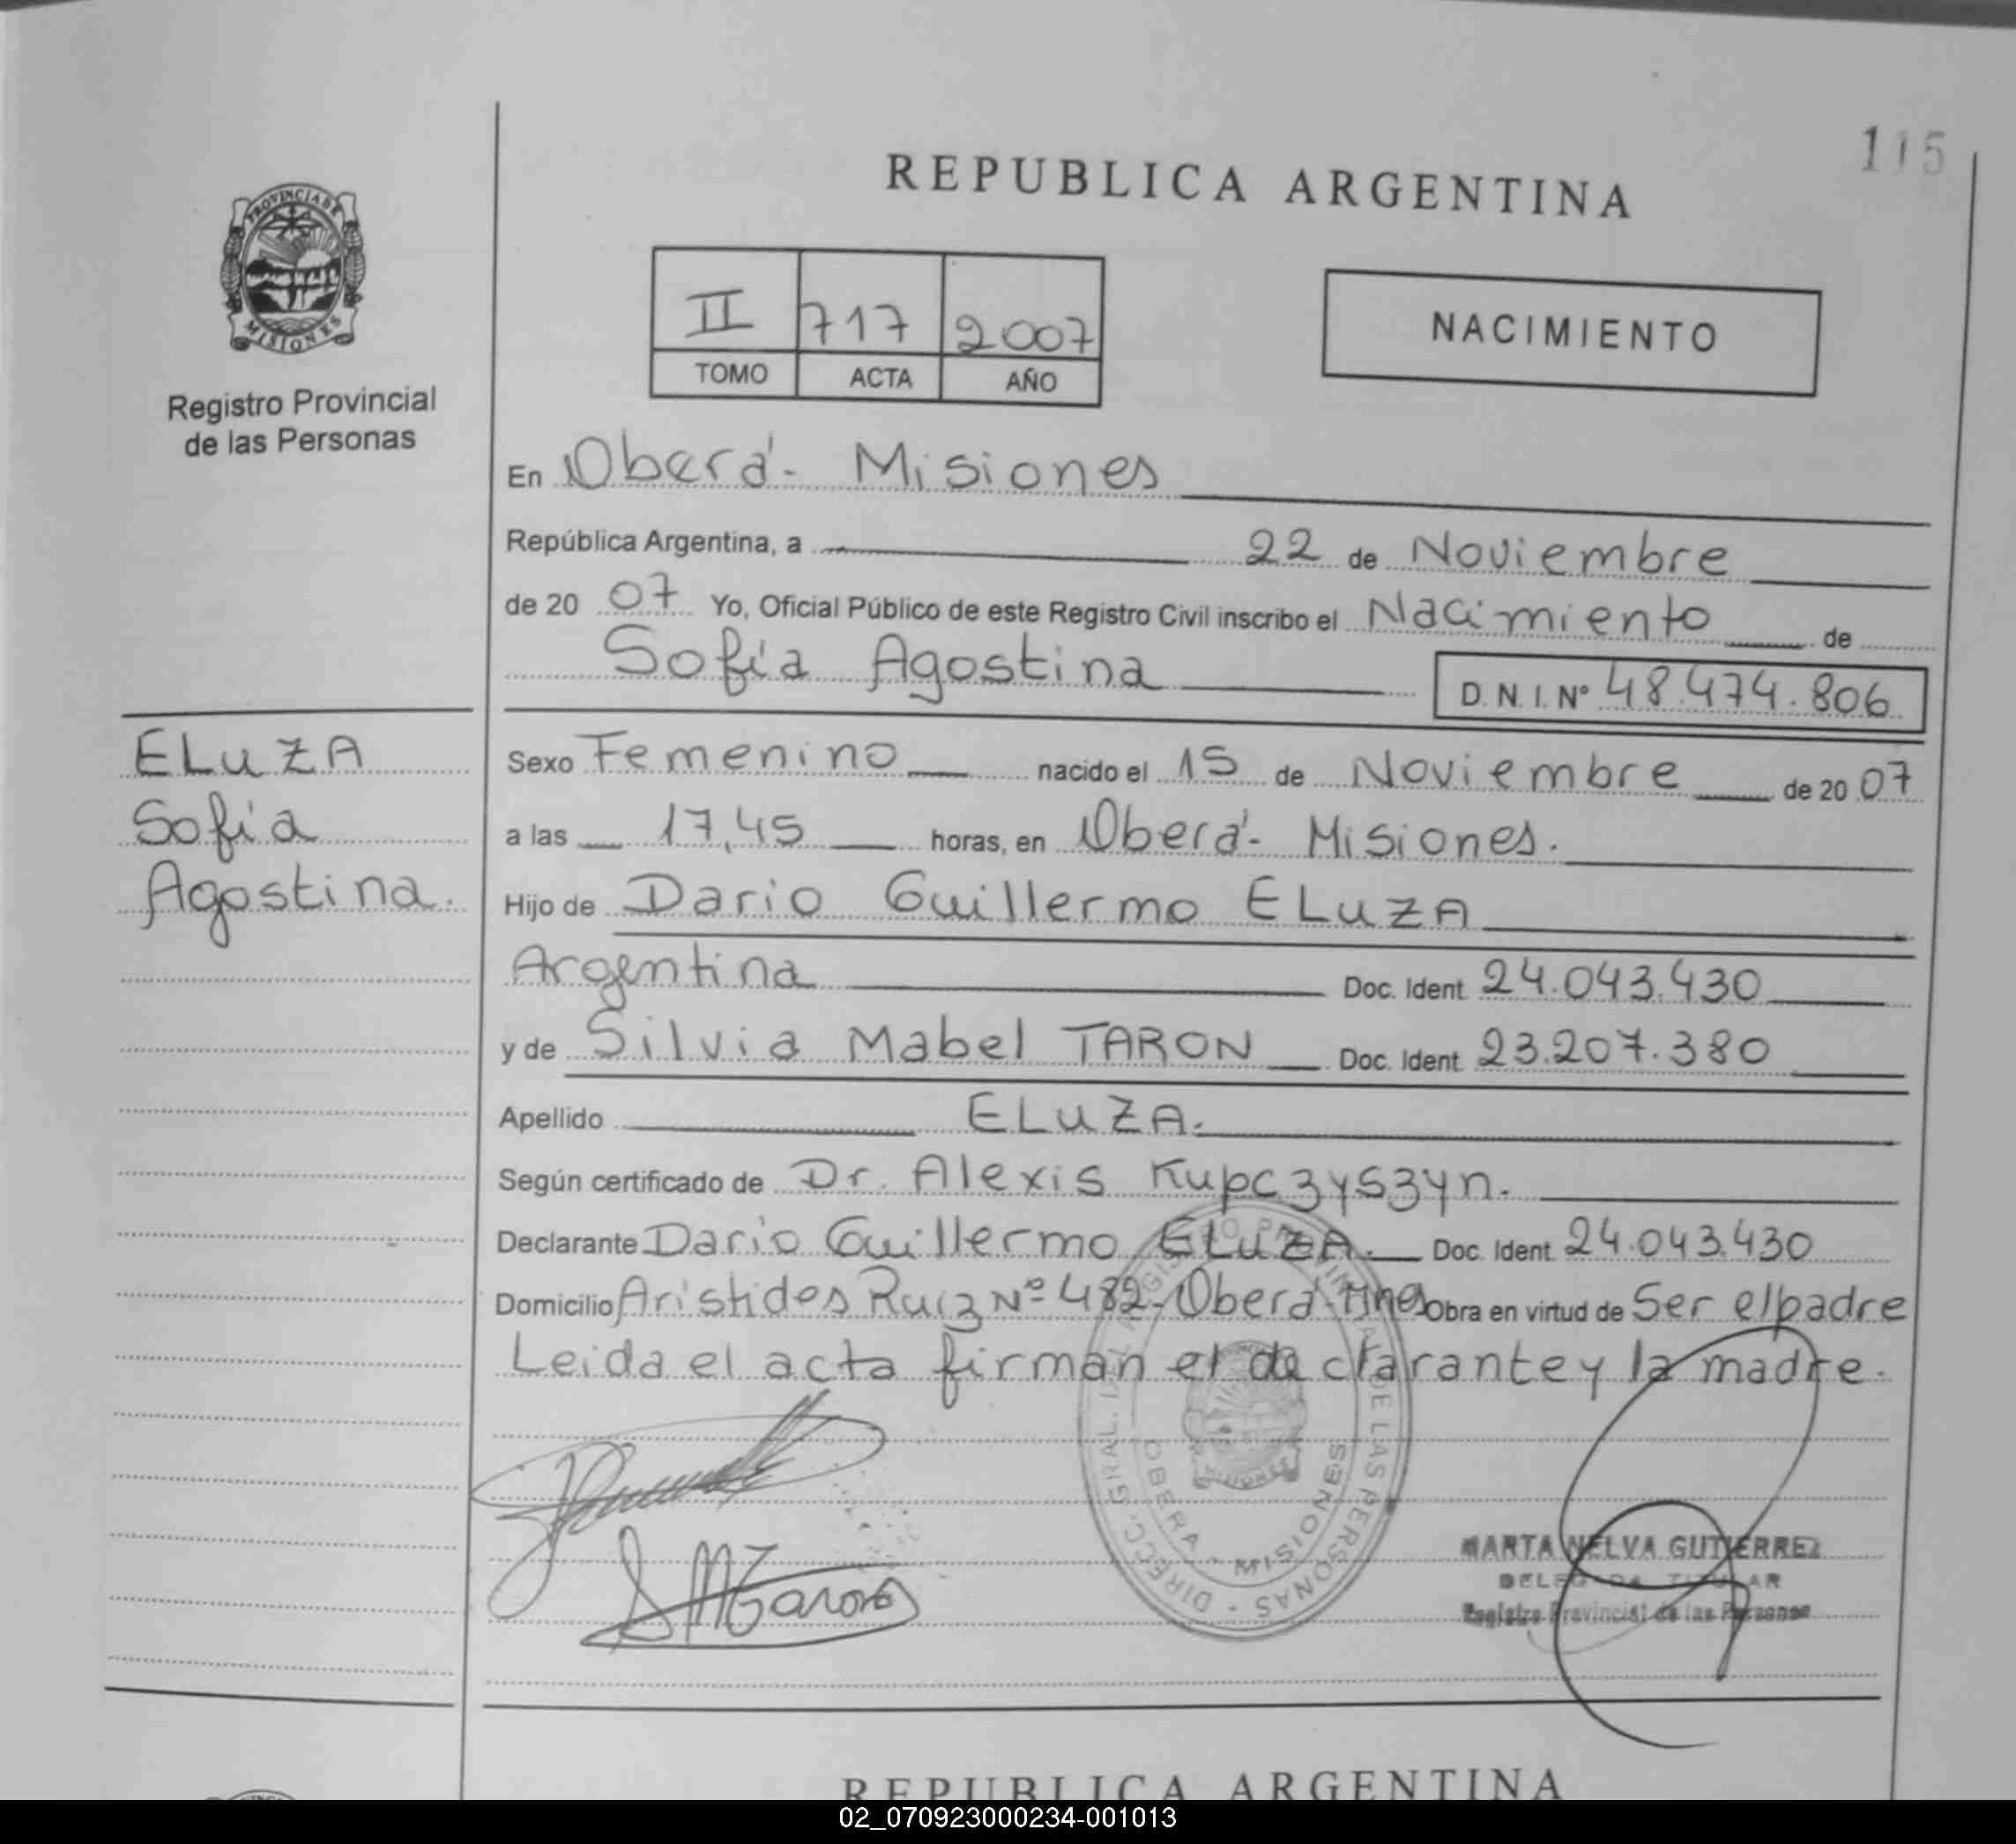 115
REPUBLICA ARGENTINA
PROVINCIA DE
MISIONES
Registro Provincial
de las Personas
II 717 2007
TOMO ACTA AÑO
NACIMIENTO
En Oberá - Misiones
República Argentina, a 22 de Noviembre
de 20 07 Yo, Oficial Público de este Registro Civil inscribo el Nacimiento de
Sofía Agostina D.N.I.Nº 48.474.806
ELUZA
Sofía
Agostina.
Sexo Femenino nacido el 15 de Noviembre de 20 07
a las 17,45 horas, en Oberá - Misiones.
Hijo de Dario Guillermo ELUZA
Argentina Doc. Ident. 24.043.430
y de Silvia Mabel TARON Doc. Ident. 23.207.380
Apellido ELUZA.
Según certificado de Dr. Alexis Kupczyszyn.
Declarante Dario Guillermo ELUZA. Doc. Ident. 24.043.430
Domicilio Arístides Ruiz Nº 482 - Oberá - Mnes Obra en virtud de Ser el padre
Leida el acta firman el declarante y la madre.
DIRECC. GRAL. DEL REGISTRO PROVINCIAL DE LAS PERSONAS -
OBERA - MISIONES
SMTaron
MARTA NELVA GUTIERREZ
DELEGADA TITULAR
Registro Provincial de las Personas
REPUBLICA ARGENTINA
02_070923000234-001013